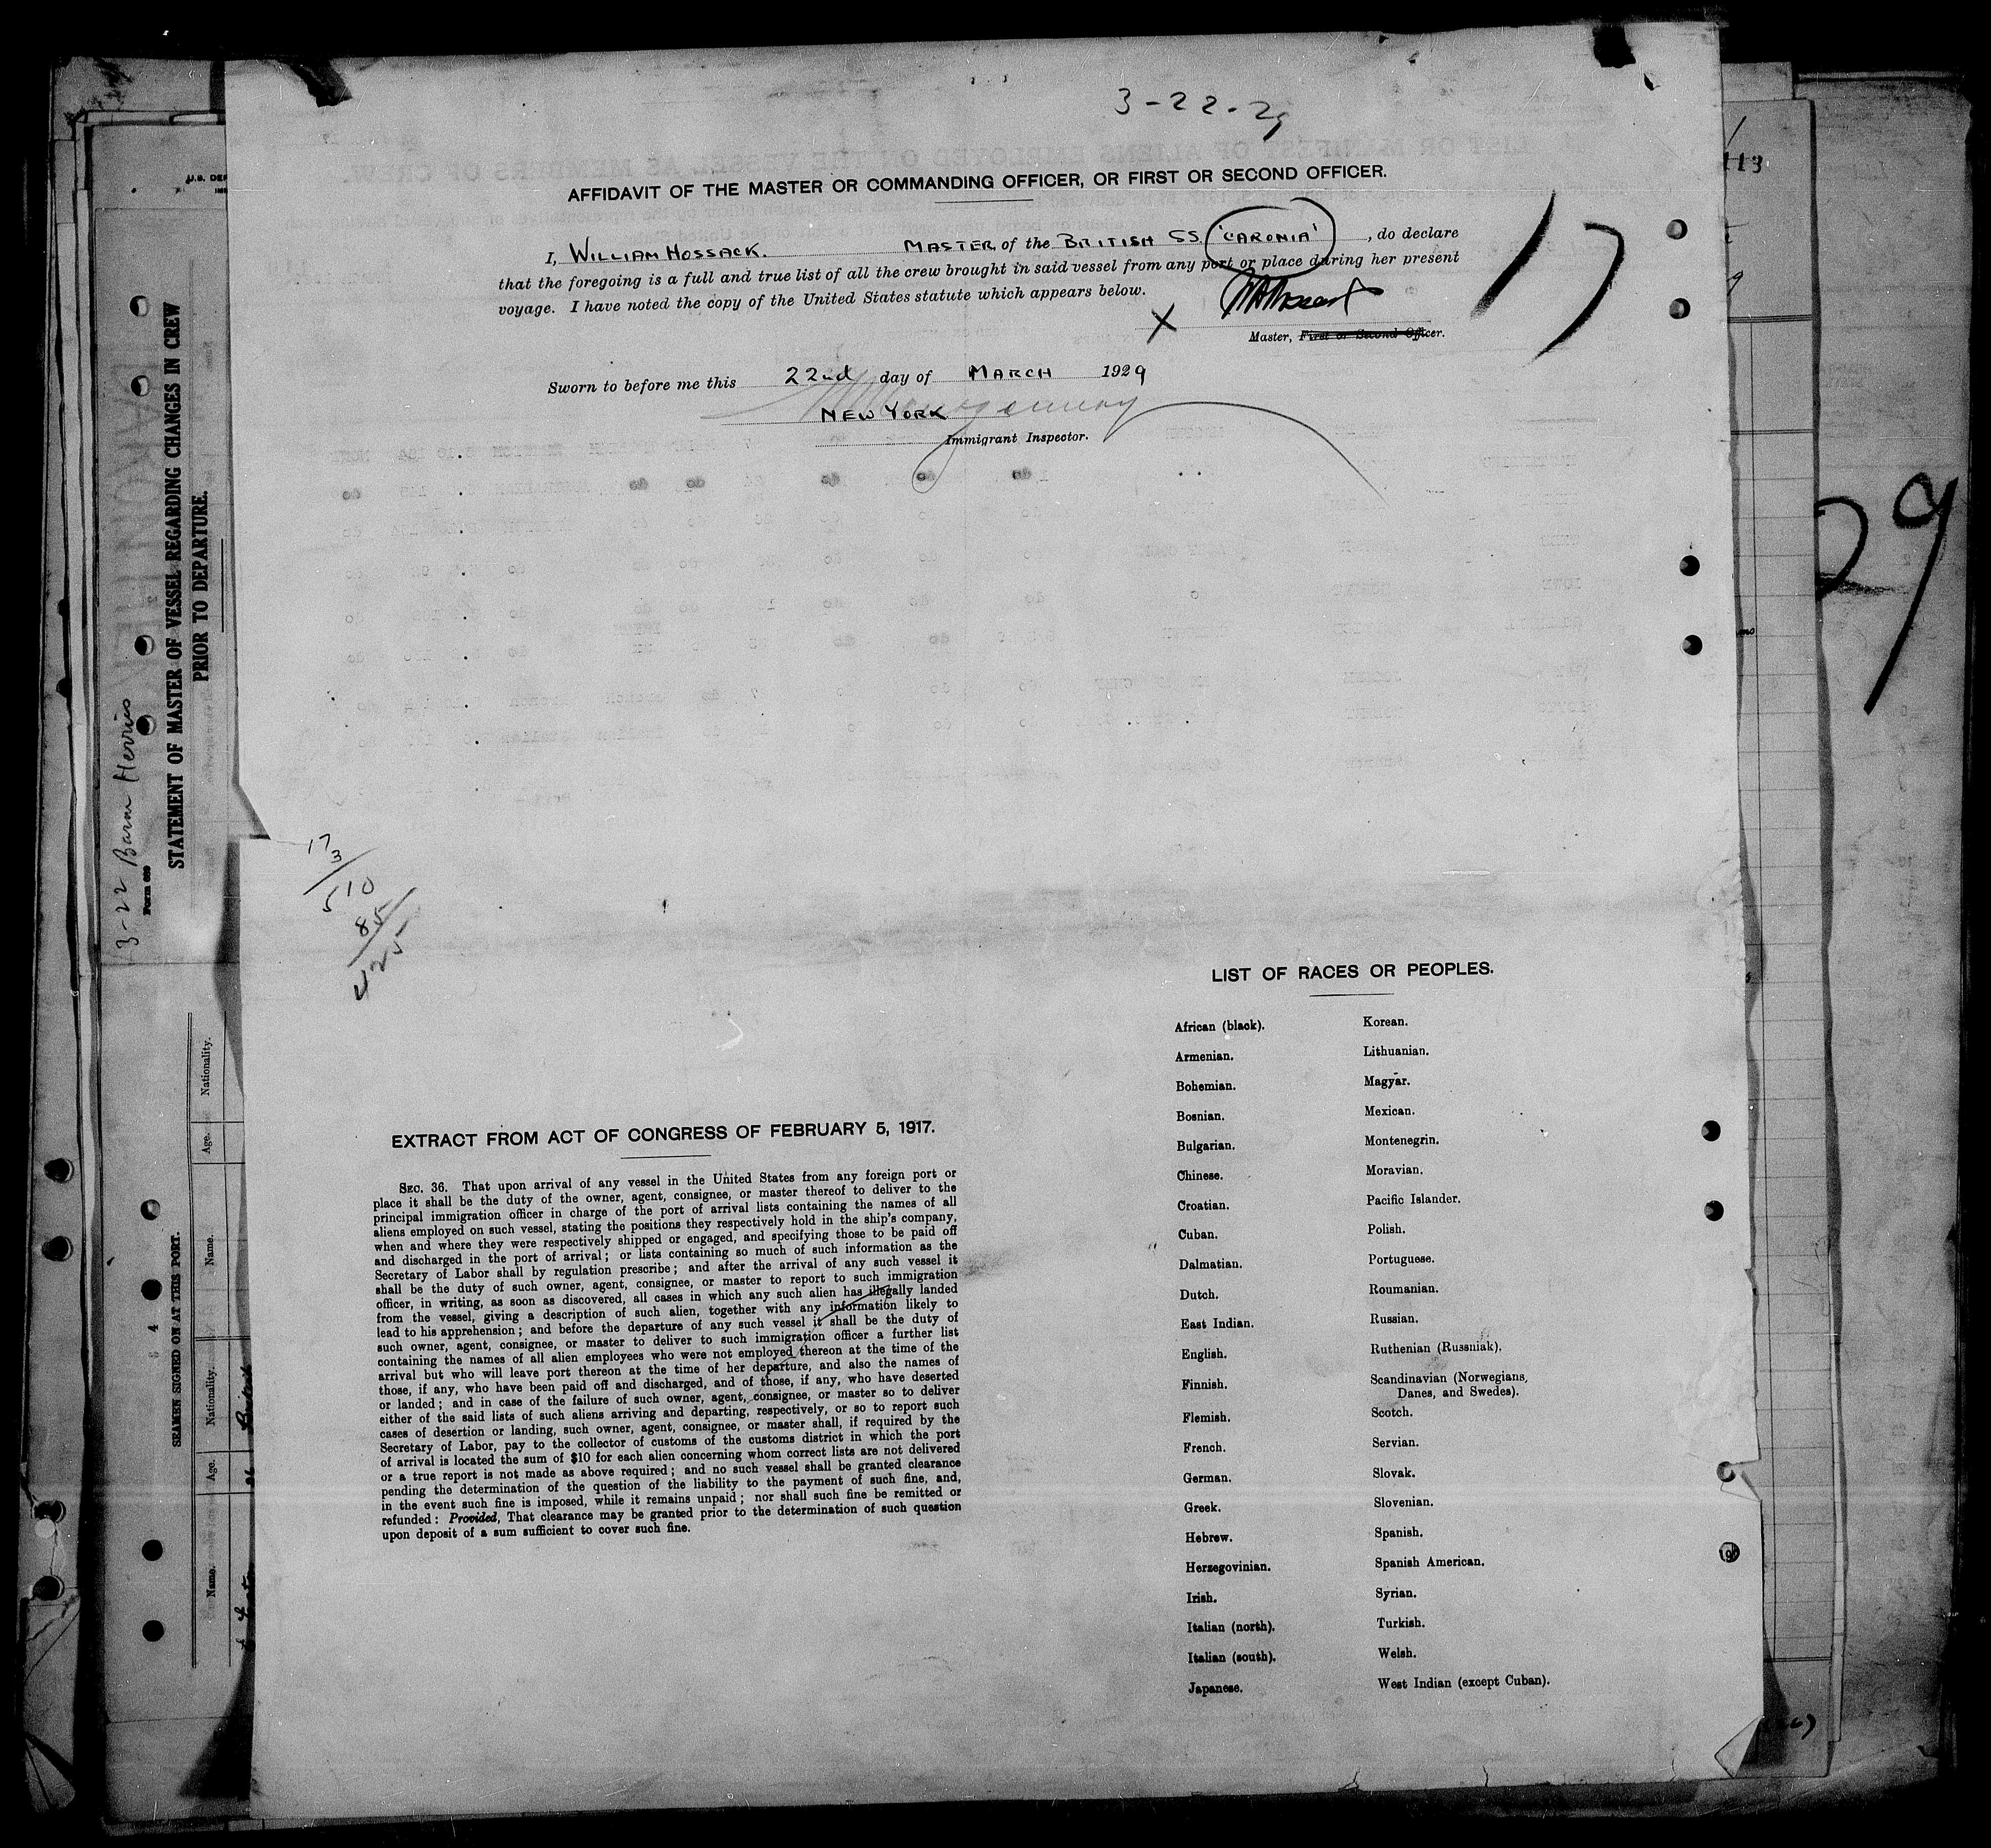 3-22-29
AFFIDAVIT OF THE MASTER OR COMMANDING OFFICER, OR FIRST OR SECOND OFFICER.
I, WILLIAM HOSSACK. MASTER, of the BRITISH SS. 'CARONIA', do declare
that the foregoing is a full and true list of all the crew brought in said vessel from any port or place during her present
voyage. I have noted the copy of the United States statute which appears below.
X
Master, First or Second Officer.
17
Sworn to before me this 22nd day of MARCH 1929
NEW YORK
Immigrant Inspector.
17
3
510
85
LIST OF RACES OR PEOPLES.
African (black).
Armenian.
Bohemian.
Bosnian.
Bulgarian.
Chinese.
Croatian.
Cuban.
Dalmatian.
Dutch.
East Indian.
English.
Finnish.
Flemish.
French.
German.
Greek.
Hebrew.
Herzegovinian.
Irish.
Italian (north).
Italian (south).
Japanese.
Korean.
Lithuanian.
Magyar.
Mexican.
Montenegrin.
Moravian.
Pacific Islander.
Polish.
Portuguese.
Roumanian.
Russian.
Ruthenian (Russniak).
Scandinavian (Norwegians,
Danes, and Swedes).
Scotch.
Servian.
Slovak.
Slovenian.
Spanish.
Spanish American.
Syrian.
Turkish.
Welsh.
West Indian (except Cuban).
EXTRACT FROM ACT OF CONGRESS OF FEBRUARY 5, 1917.
SEC. 36. That upon arrival of any vessel in the United States from any foreign port or
place it shall be the duty of the owner, agent, consignee, or master thereof to deliver to the
principal immigration officer in charge of the port of arrival lists containing the names of all
aliens employed on such vessel, stating the positions they respectively hold in the ship's company,
when and where they were respectively shipped or engaged, and specifying those to be paid off
and discharged in the port of arrival; or lists containing so much of such information as the
Secretary of Labor shall by regulation prescribe; and after the arrival of any such vessel it
shall be the duty of such owner, agent, consignee, or master to report to such immigration
officer, in writing, as soon as discovered, all cases in which any such alien has illegally landed
from the vessel, giving a description of such alien, together with any information likely to
lead to his apprehension; and before the departure of any such vessel it shall be the duty of
such owner, agent, consignee, or master to deliver to such immigration officer a further list
containing the names of all alien employees who were not employed thereon at the time of the
arrival but who will leave port thereon at the time of her departure, and also the names of
those, if any, who have been paid off and discharged, and of those, if any, who have deserted
or landed; and in case of the failure of such owner, agent, consignee, or master so to deliver
either of the said lists of such aliens arriving and departing, respectively, or so to report such
cases of desertion or landing, such owner, agent, consignee, or master shall, if required by the
Secretary of Labor, pay to the collector of customs of the customs district in which the port
of arrival is located the sum of $10 for each alien concerning whom correct lists are not delivered
or a true report is not made as above required; and no such vessel shall be granted clearance
pending the determination of the question of the liability to the payment of such fine, and,
in the event such fine is imposed, while it remains unpaid; nor shall such fine be remitted or
refunded: Provided, That clearance may be granted prior to the determination of such question
upon deposit of a sum sufficient to cover such fine.
3-22 Baron Herries
Form 689
STATEMENT OF MASTER OF VESSEL REGARDING CHANGES IN CREW
PRIOR TO DEPARTURE.
SEAMEN SIGNED ON AT THIS PORT.
Name. Age. Nationality. Name. Age. Nationality.
U.S. DEP
113
29